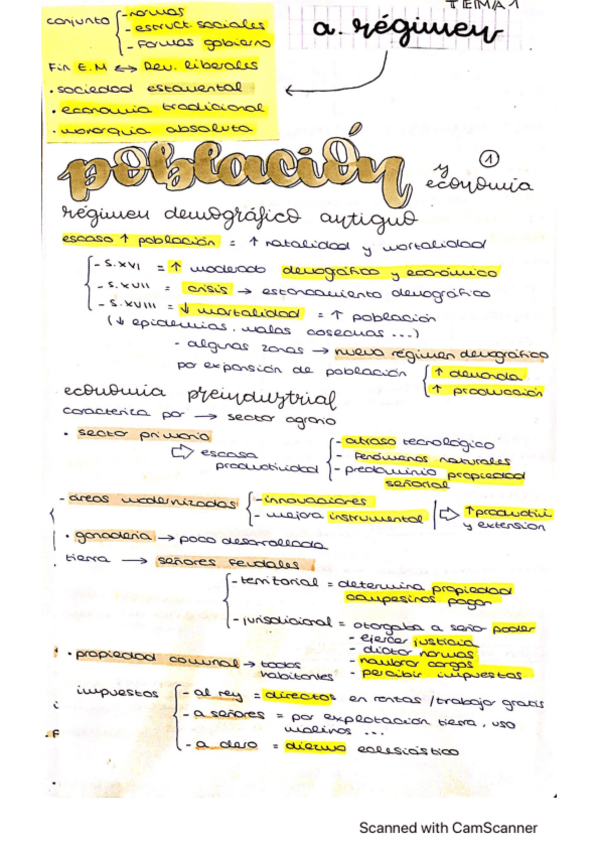 TEMA 1
a. régimen
conjunto - normas
- estruct. sociales
- formas gobierno
Fin E.M ↔ Rev. liberales
· sociedad estamental
· economía tradicional
· monarquía absoluta
población y economía ①
régimen demográfico antiguo
escaso ↑ población = ↑ natalidad y mortalidad
- S.XVI = ↑ moderado demográfico y económico
- S.XVII = crisis → estancamiento demográfico
- S.XVIII = ↓ mortalidad = ↑ población
(↓ epidemias, malas cosechas ...)
- algunas zonas → nuevo régimen demográfico
por expansión de población
↑ demanda
↑ producción
economía preindustrial
caracteriza por → sector agrario
· sector primario
⇨ escasa productividad
- atraso tecnológico
- fenómenos naturales
- predominio propiedad señorial
- áreas modernizadas
- innovaciones
- mejora instrumental
⇨ ↑ productivi
y extensión
· ganadería → poco desarrollada
tierra → señores feudales
- territorial = determina propiedad
campesinos pagar
- jurisdicional = otorgaba a seño poder
- ejercer justicia
- dictar normas
- nombrar cargos
- percibir impuestos
· propiedad comunal → todos habitantes
impuestos
- al rey = directos en rentas / trabajo gratis
- a señores = por explotación tierra, uso
molinos ...
- a clero = diezmo eclesiástico
Scanned with CamScanner